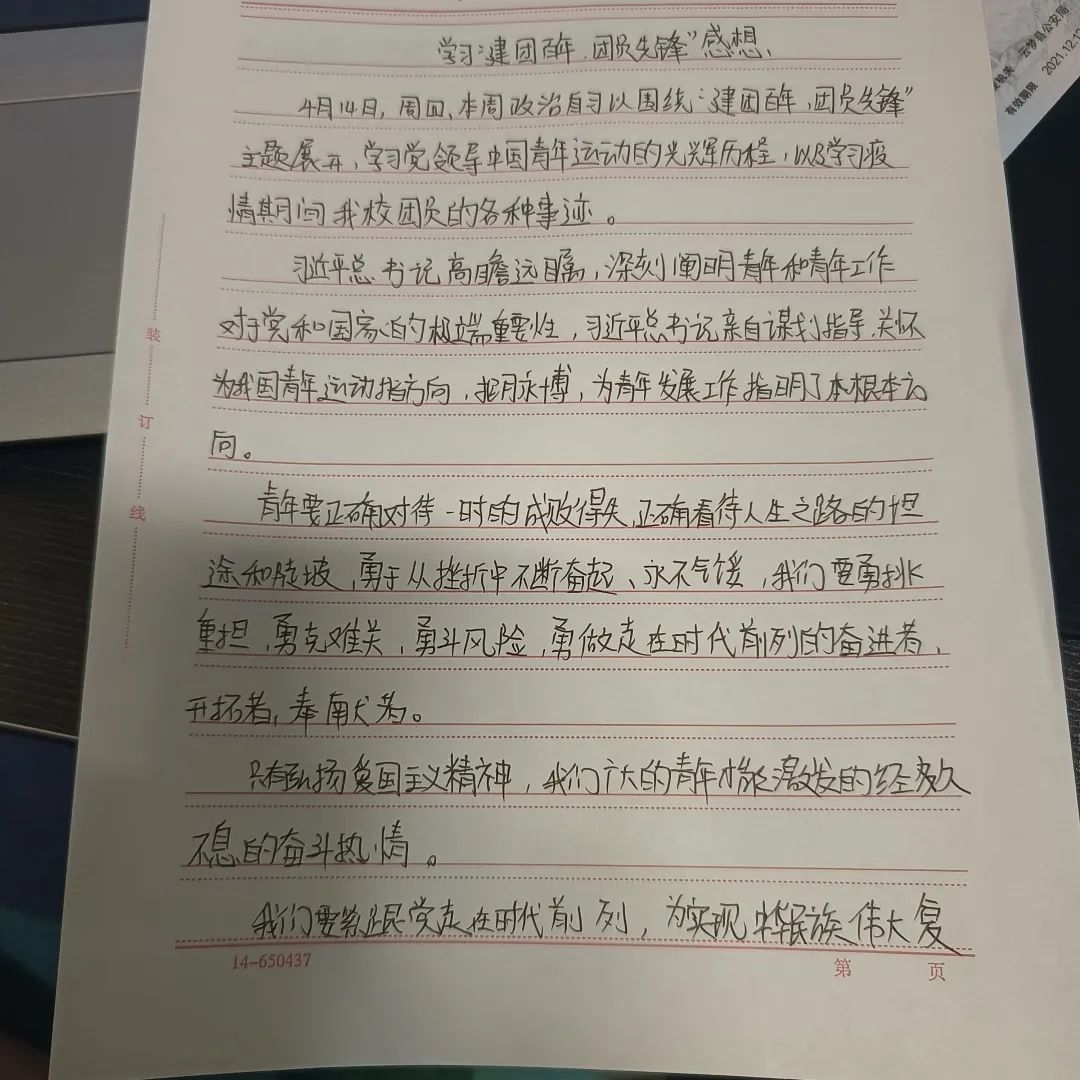 学习“建团百年，团员先锋”感想、
4月14日，周四、本周政治自习以围绕“建团百年，团员先锋”
主题展开，学习党领导中国青年运动的光辉历程，以及学习疫
情期间我校团员的各种事迹。
习近平总书记高瞻远瞩，深刻阐明青年和青年工作
对于党和国家的极端重要性，习近平总书记亲自谋划指导、关怀
为我国青年运动指方向，把脉，为青年发展工作指明了本根本方
向。
青年要正确对待一时的成败得失，正确看待人生之路的坦
途和陡坡，勇于从挫折中不断奋起、永不气馁，我们要勇挑
重担，勇克难关，勇斗风险，勇做走在时代前列的奋进者、
开拓者，奉献者。
只有弘扬爱国主义精神，我们广大的青年才能激发的经久
不息的奋斗热情。
我们要紧跟党走在时代前列，为实现中华民族伟大复
装
订
线
14-650437
第 页
机关 云梦县公安局
有效期限 2021.12.1